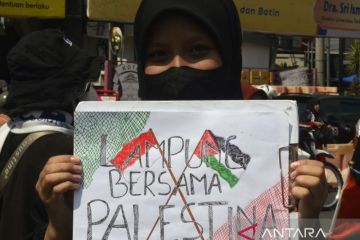 ntuan berlaku
dan Batin
Dra. Sri Is
LAMPUNG
BERSAMA
PALESTINA
ANTARA